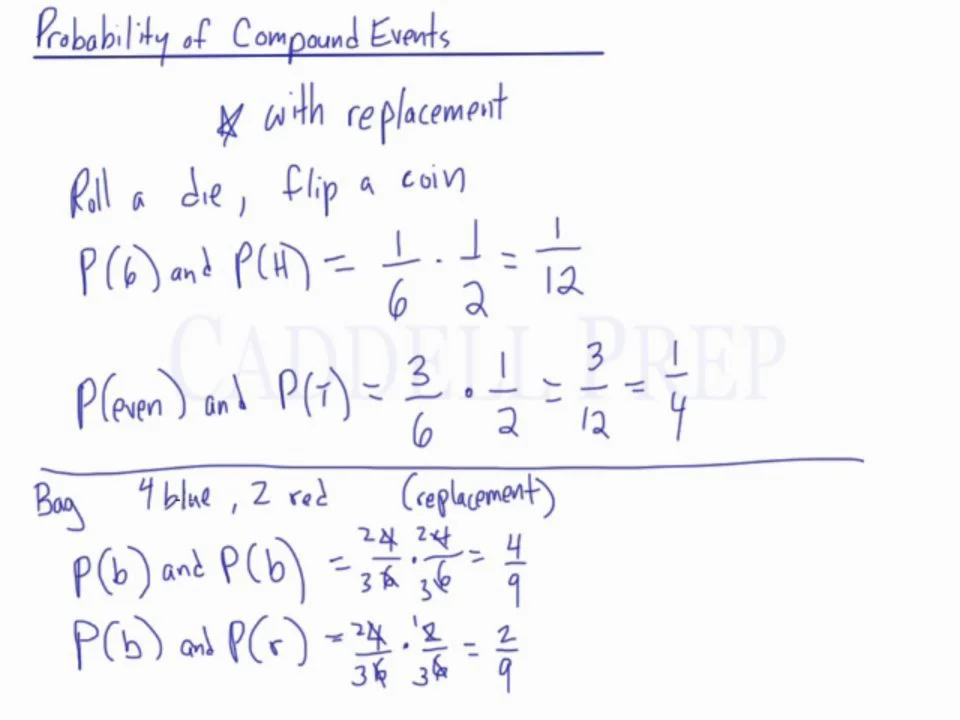 Probability of Compound Events
☆ with replacement
Roll a die, flip a coin
P(6) and P(H) = 1/6 · 1/2 = 1/12
CADDELL PREP
P(even) and P(T) = 3/6 · 1/2 = 3/12 = 1/4
Bag 4 blue, 2 red (replacement)
P(b) and P(b) = 2 4/3 6 · 2 4/3 6 = 4/9
P(b) and P(r) = 2 4/3 6 · 1 2/3 6 = 2/9